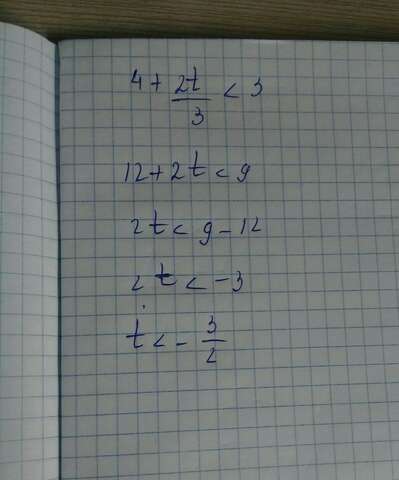 4 + 2t/3 < 3
12 + 2t < 9
2t < 9 - 12
2t < -3
t < - 3/2